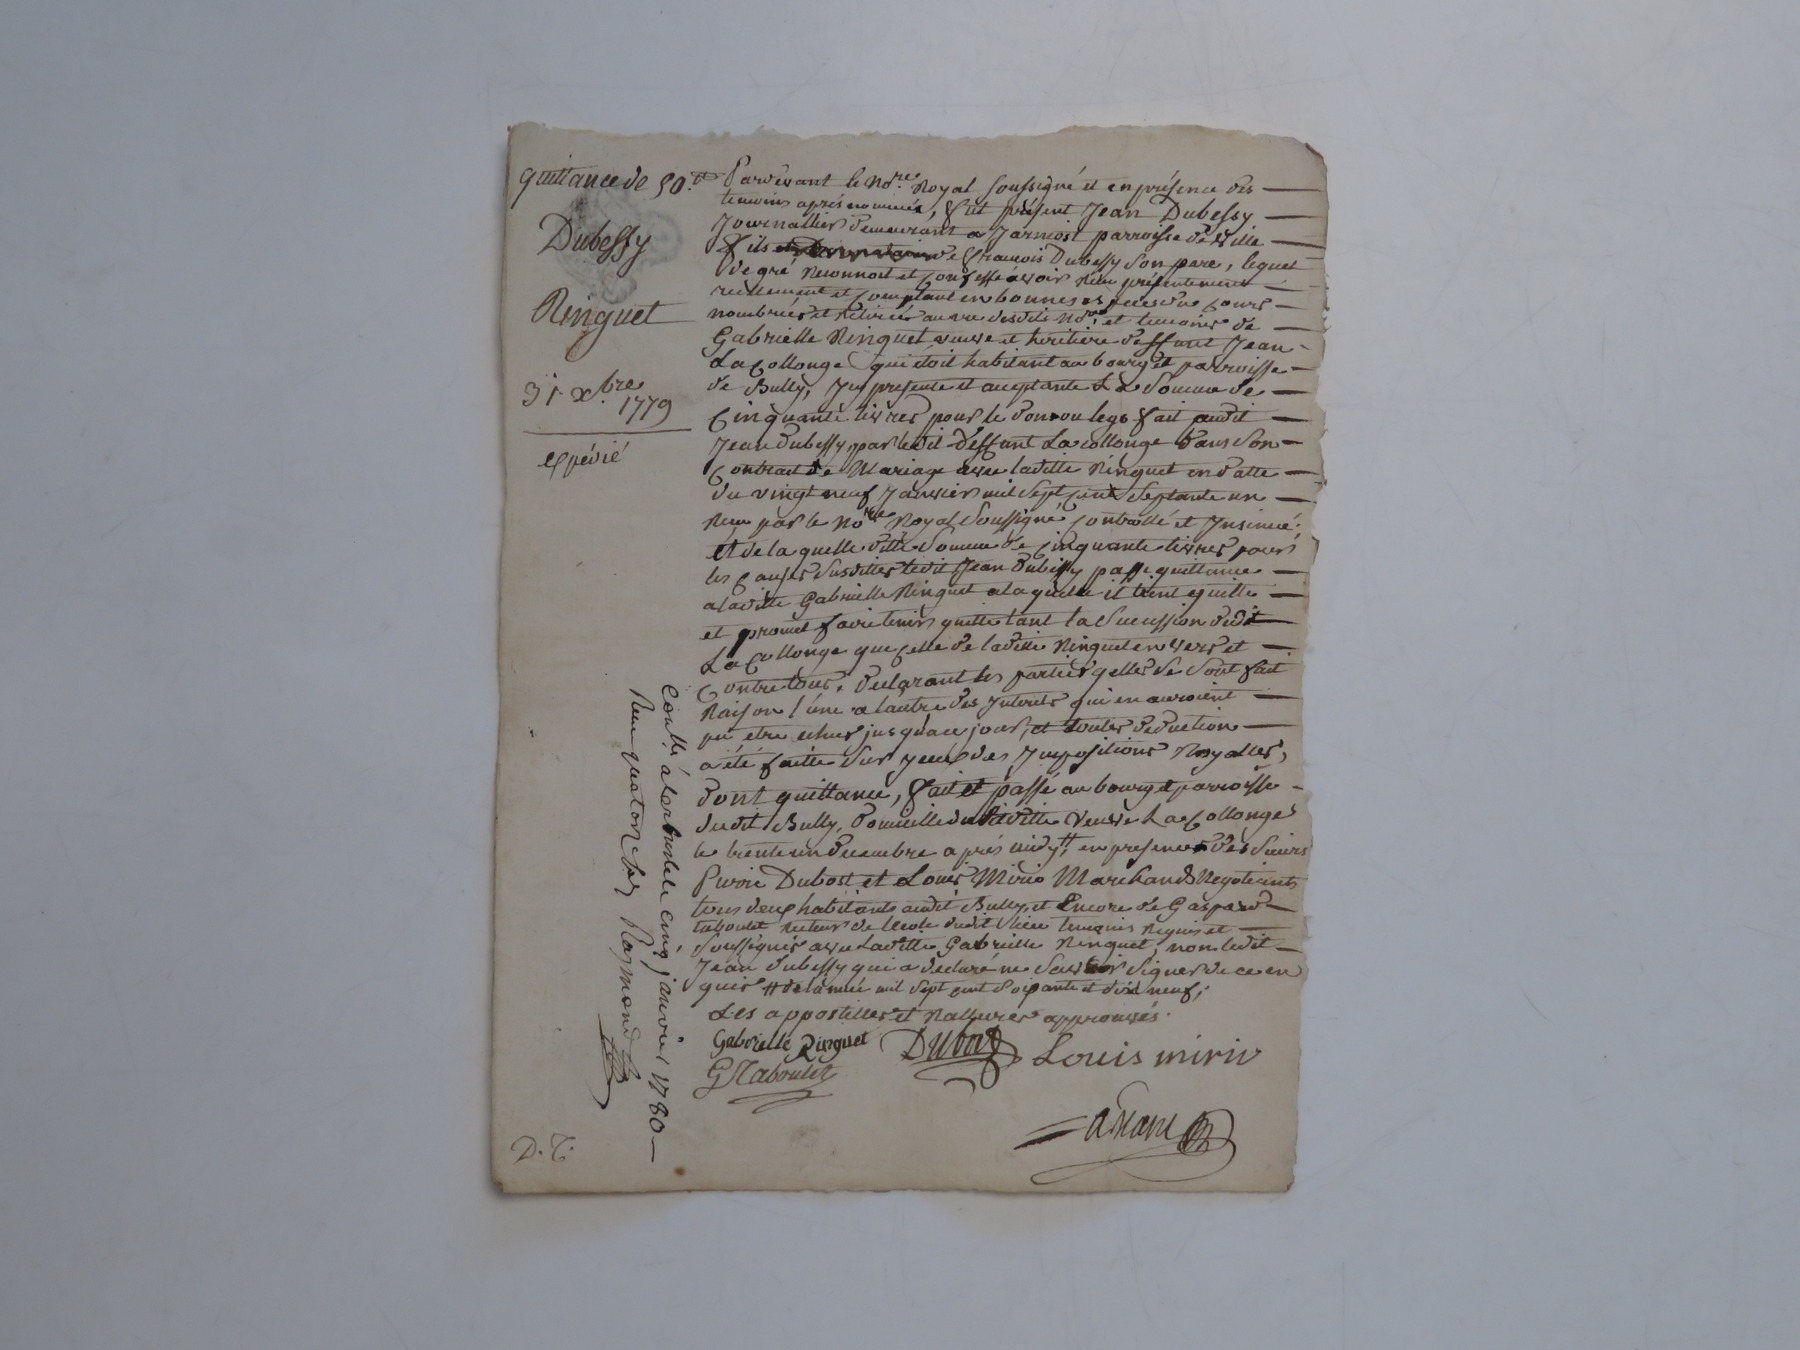 quittance de 50.tt
Dubessy
Ringuet
31 xbre.
1779
expédié
Pardevant le Nore. Royal soussigné et en présence des
temoins après nommés, fut présent Jean Dubessy
Journallier demeurant a Jarniost parroisse de Ville
fils de francois Dubessy son pere, lequel
de gré reconnoit et confesse avoir reçu présentement
reellement et comptant en bonnes especes du cours
nombrées et retirées au vu desdits Nore. et temoins de
Gabrielle Ringuet veuve et heritiere deffunt Jean
La Collonge qui étoit habitant au bourg et parroisse
de Bully, icy presente et acceptante La Somme de
Cinquante livres pour le don ou legs fait audit
Jean Dubessy par ledit deffunt La collonge dans son
Contract de Mariage avec laditte Ringuet en datte
du vingt neuf Janvier mil sept cent septante un
reçu par le Nore Royal soussigné controllé et Insinué.
et de la quelle ditte somme de cinquante livres pour
les causes susdittes ledit Jean Dubessy passe quittance
a laditte Gabrielle Ringuet a la quelle il tient quitte
et promet faire tenir quitte tant la sucession dudit
La Collonge que celle de laditte Ringuet envers et
Contre tous. Declarant les parties qelles se sont fait
Raison l'une a l'autre des Interets qui en auroient
pu etre echus jusqu'a ce jour, et toutes deduction
a été faitte sur yceux des Impositions Royalles,
Dont quittance, fait et passé au bourg et parroisse
dudit Bully, Domicille de laditte veuve La Collonge
le trente un decembre après midy tt, en presence des sieurs
Dubost et Louis Mirio Marchands Negotiants
tous deux habitants audit Bully, et Encore de Gaspard
taboulet recteur de lecole dudit lieu temoins requis et
soussignés avec Laditte Gabrielle Ringuet, non ledit
Jean Dubessy qui a declaré ne savoir signer de ce en
quis tt de lannée mil sept cent soixante et dix neuf;
Les appostilles et rattures approuvés.
Gabrielle Ringuet Dubost Louis mirio
G Taboulet
Conllé à Larbresle le cinq janvier 1780
Reçu quatorze sols Raymond
D. T.